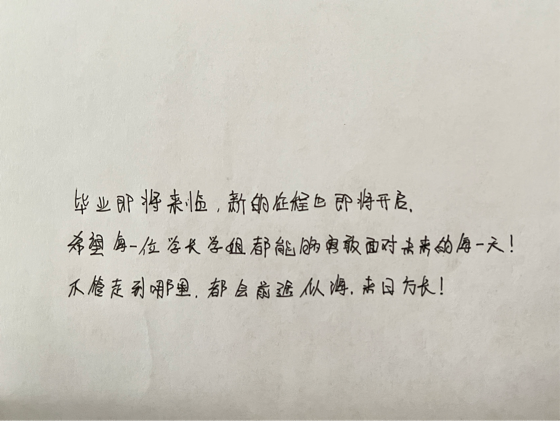 毕业即将来临，新的征程也即将开启.
希望每一位学长学姐都能够勇敢面对未来的每一天！
不管走到哪里，都会前途似海，来日方长！